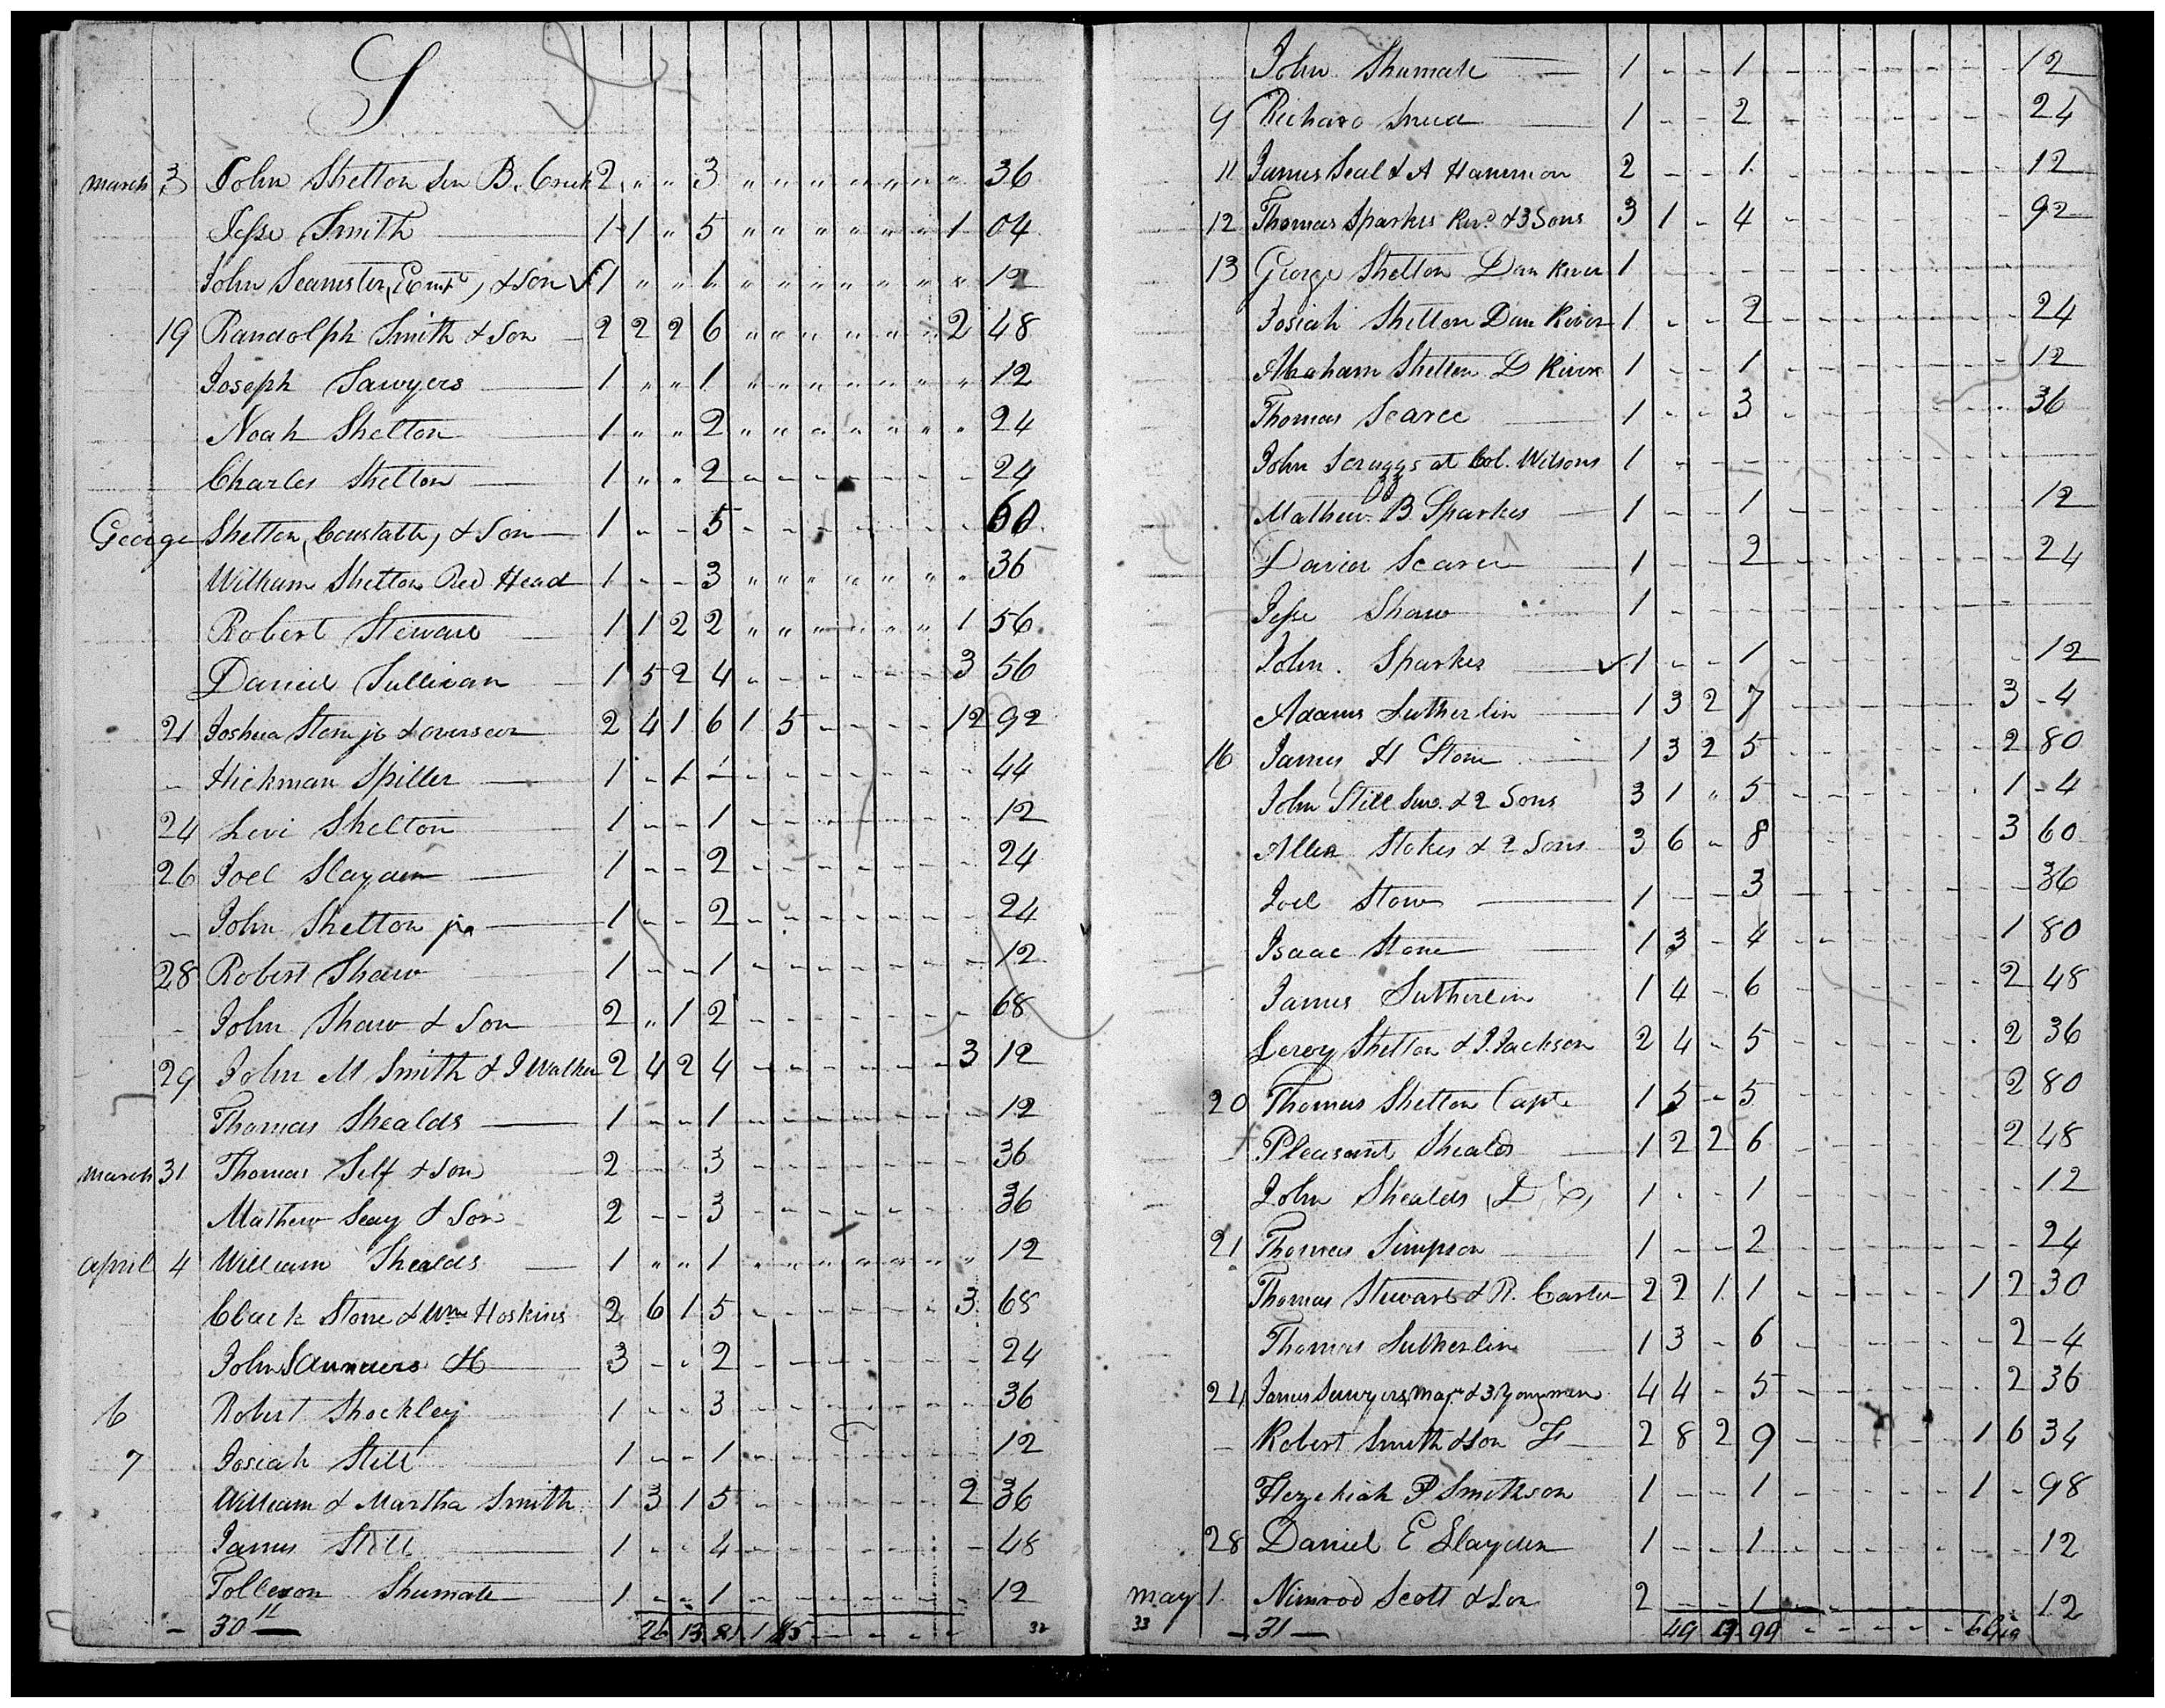 S
march 3 John Shelton Sen B. Creek 2 " " 3 " " " " " " " 36
Jesse Smith 1 1 " 5 " " " " " " 1 04
John Scamster, & Son ✓ 1 " " 1 " " " " " " " 12
19 Randolph Smith & Son 2 2 2 6 " " " " " " 2 48
Joseph Sawyers 1 " " 1 " " " " " " " 12
Noah Shelton 1 " " 2 " " " " " " " 24
Charles Shelton 1 " " 2 - - - - - - - 24
George Shelton, Constable, & Son 1 - - 5 - - - - - - - 60
William Shelton Red Head 1 - - 3 " " " " " " " 36
Robert Stewart 1 1 2 2 " " " " " " 1 56
Daniel Sullivan 1 5 2 4 - - - - - - 3 56
21 Joshua Stone jr & overseer 2 4 1 6 1 5 - - - - 12 92
- Hickman Spiller 1 - 1 - - - - - - - - 44
24 Levi Shelton 1 - - 1 - - - - - - - 12
26 Joel Slayden 1 - - 2 - - - - - - - 24
- John Shelton jr 1 - - 2 - - - - - - - 24
28 Robert Shaw 1 - - 1 - - - - - - - 12
- John Shaw & Son 2 " 1 2 - - - - - - - 68
29 John M Smith & J Walker 2 4 2 4 - - - - - - 3 12
Thomas Shealds 1 - - 1 - - - - - - - 12
march 31 Thomas Self & Son 2 - - 3 - - - - - - - 36
Mathew Seay & Son 2 - - 3 - - - - - - - 36
april 4 William Shealds 1 " " 1 " " " " " " " 12
Clack Stone & Wm Hoskins 2 6 1 5 - - - - - - 3 68
John Saunders H 3 - - 2 - - - - - - - 24
6 Robert Shockley 1 - - 3 - - - - - - - 36
7 Josiah Still 1 - - 1 - - - - - - - 12
William & Martha Smith 1 3 1 5 - - - - - - 2 36
James Still 1 - - 4 - - - - - - - 48
Tolleson Shumate 1 - - 1 - - - - - - - 12
- 30 " - 26 13 81 1 - - - - 32
John Shumate 1 - - 1 - - - - - - - 12
9 Richard Snead 1 - - 2 - - - - - - - 24
11 James Seal & A Hammon 2 - - 1 - - - - - - - 12
12 Thomas Sparkes Revd & 3 Sons 3 1 - 4 - - - - - - - 92
13 George Shelton Dan River 1 - - - - - - - - - -
Josiah Shelton Dan River 1 - - 2 - - - - - - - 24
Abraham Shelton D River 1 - - 1 - - - - - - - 12
Thomas Scarce 1 - - 3 - - - - - - - 36
John Scruggs at Col. Wilsons 1 - - - - - - - - - -
Mathew B Sparkes 1 - - 1 - - - - - - - 12
David Scarce 1 - - 2 - - - - - - - 24
Jesse Shaw 1 - - - - - - - - - -
John Sparkes ✓ 1 - - 1 - - - - - - - 12
Adams Sutherlin 1 3 2 7 - - - - - - 3 - 4
16 James H Stone 1 3 2 5 - - - - - - 2 80
John Still Senr. & 2 Sons 3 1 " 5 - - - - - - 1 - 4
Allen Stokes & 2 Sons 3 6 - 8 - - - - - - 3 60
Joel Stow 1 - - 3 - - - - - - - 36
Isaac Stone 1 3 - 4 - - - - - - 1 80
James Sutherlin 1 4 - 6 - - - - - - 2 48
Leroy Shelton & J. Jackson 2 4 - 5 - - - - - - 2 36
20 Thomas Shelton Capt. 1 5 - 5 - - - - - - 2 80
Pleasant Shealds 1 2 2 6 - - - - - - 2 48
John Shealds 1 - - 1 - - - - - - - 12
21 Thomas Simpson 1 - - 2 - - - - - - - 24
Thomas Stewart & R. Carter 2 2 1 1 - - - - - 1 2 30
Thomas Sutherlin 1 3 - 6 - - - - - - 2 - 4
24 James Sawyers, Majr & 3 Yongmen 4 4 - 5 - - - - - - 2 36
- Robert Smith & Son 2 8 2 9 - - - - - 1 6 34
Hezekiah P Smithson 1 - - 1 - - - - - 1 - 98
28 Daniel E Slayden 1 - - 1 - - - - - - - 12
may 1 Nimrod Scott & Son 2 - - 1 - - - - - - - 12
33 - 31 - 49 99 - - - - -